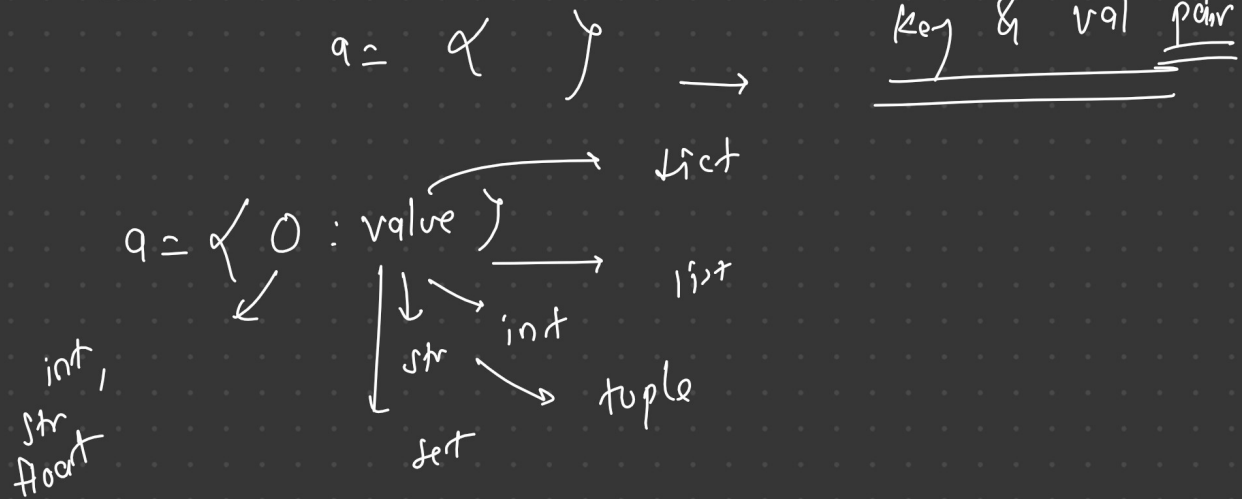 a = { } → key & val pair
dict
a = { 0 : value }
list
int
str
tuple
set
int,
str
float